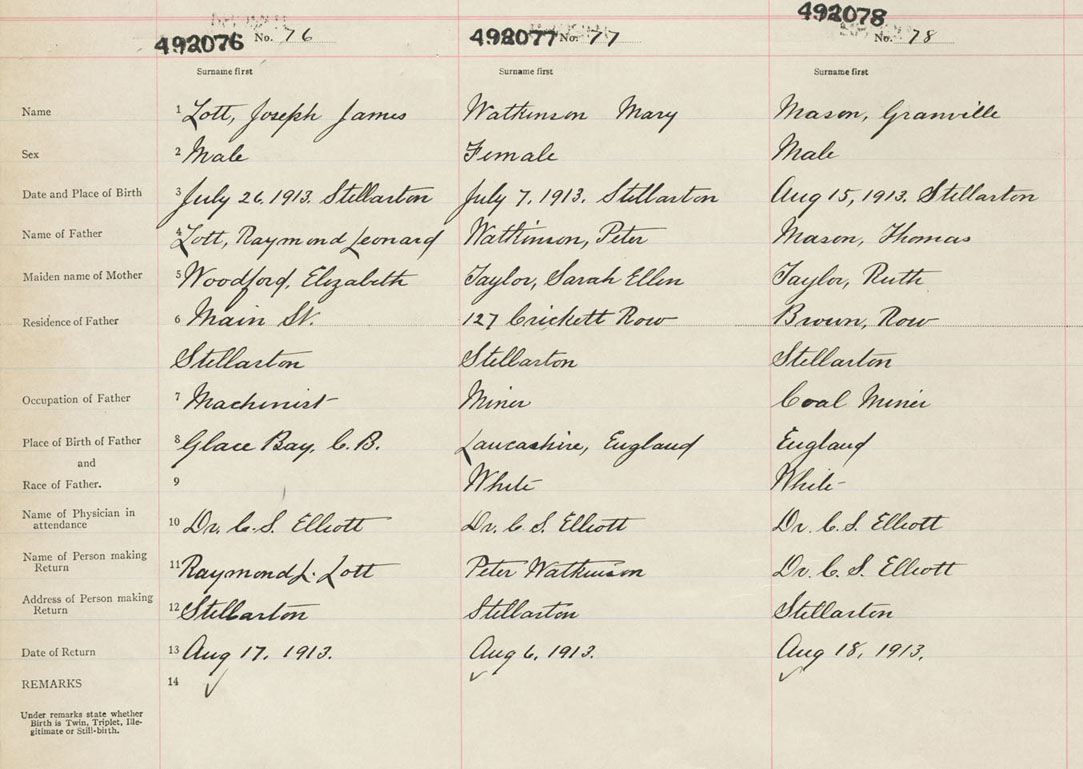 492076 No. 76 492077 No. 77 492078 No. 78
Surname first Surname first Surname first
Name 1 Lott, Joseph James Watkinson Mary Mason, Granville
Sex 2 Male Female Male
Date and Place of Birth 3 July 26, 1913. Stellarton July 7, 1913. Stellarton Aug 15, 1913. Stellarton
Name of Father 4 Lott, Raymond Leonard Watkinson, Peter Mason, Thomas
Maiden name of Mother 5 Woodford, Elizabeth Taylor, Sarah Ellen Taylor, Ruth
Residence of Father 6 Main St. 127 Crickett Row Brown, Row
Stellarton Stellarton Stellarton
Occupation of Father 7 Machinist Miner Coal Miner
Place of Birth of Father 8 Glace Bay, C.B. Lancashire, England England
and
Race of Father. 9 White White
Name of Physician in
attendance 10 Dr. C.S. Elliott Dr. C S. Elliott Dr. C.S. Elliott
Name of Person making
Return 11 Raymond L. Lott Peter Watkinson Dr. C. S. Elliott
Address of Person making
Return 12 Stellarton Stellarton Stellarton
Date of Return 13 Aug 17, 1913. Aug 6, 1913. Aug 18, 1913.
REMARKS 14
Under remarks state whether
Birth is Twin, Triplet, Ille-
gitimate or Still-birth.